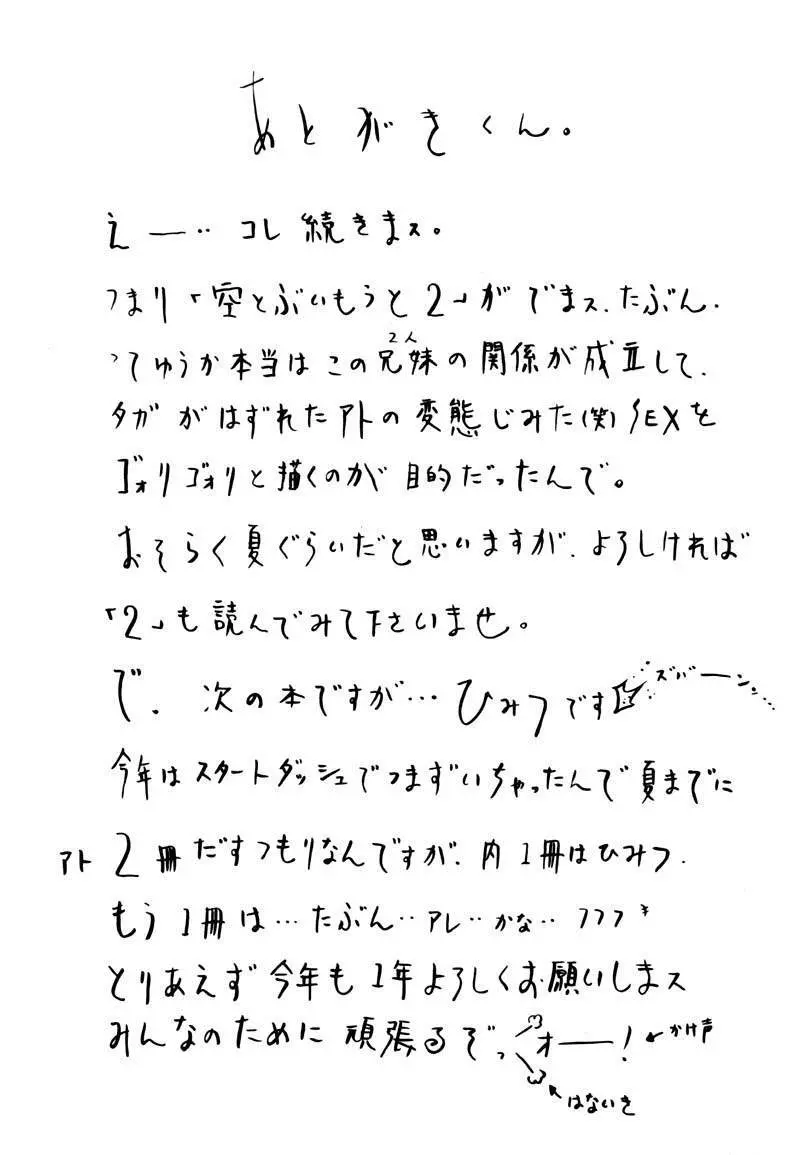 あとがきくん。
えー‥ コレ続きまス。
つまり「空とぶいもうと2」がでまス、たぶん.
つてゆうか本当はこの兄妹の関係が成立して、
2人
タガがはずれたアトの変態じみた(笑)SEXを
ゴォリゴォリと描くのが目的だったんで。
おそらく夏ぐらいだと思いますが、よろしければ
「2」も読んでみて下さいませ。
で、次の本ですが…ひみつです
ズバーン。…
今年はスタートダッシュでつまずいちゃったんで夏までに
アト2冊だすつもりなんですが、内1冊はひみつ.
もう1冊は…たぶん‥アレ‥かな‥フフフ
とりあえず今年も1年よろしくお願いしまス
みんなのために頑張るぞっオー!
←かけ声
はないき